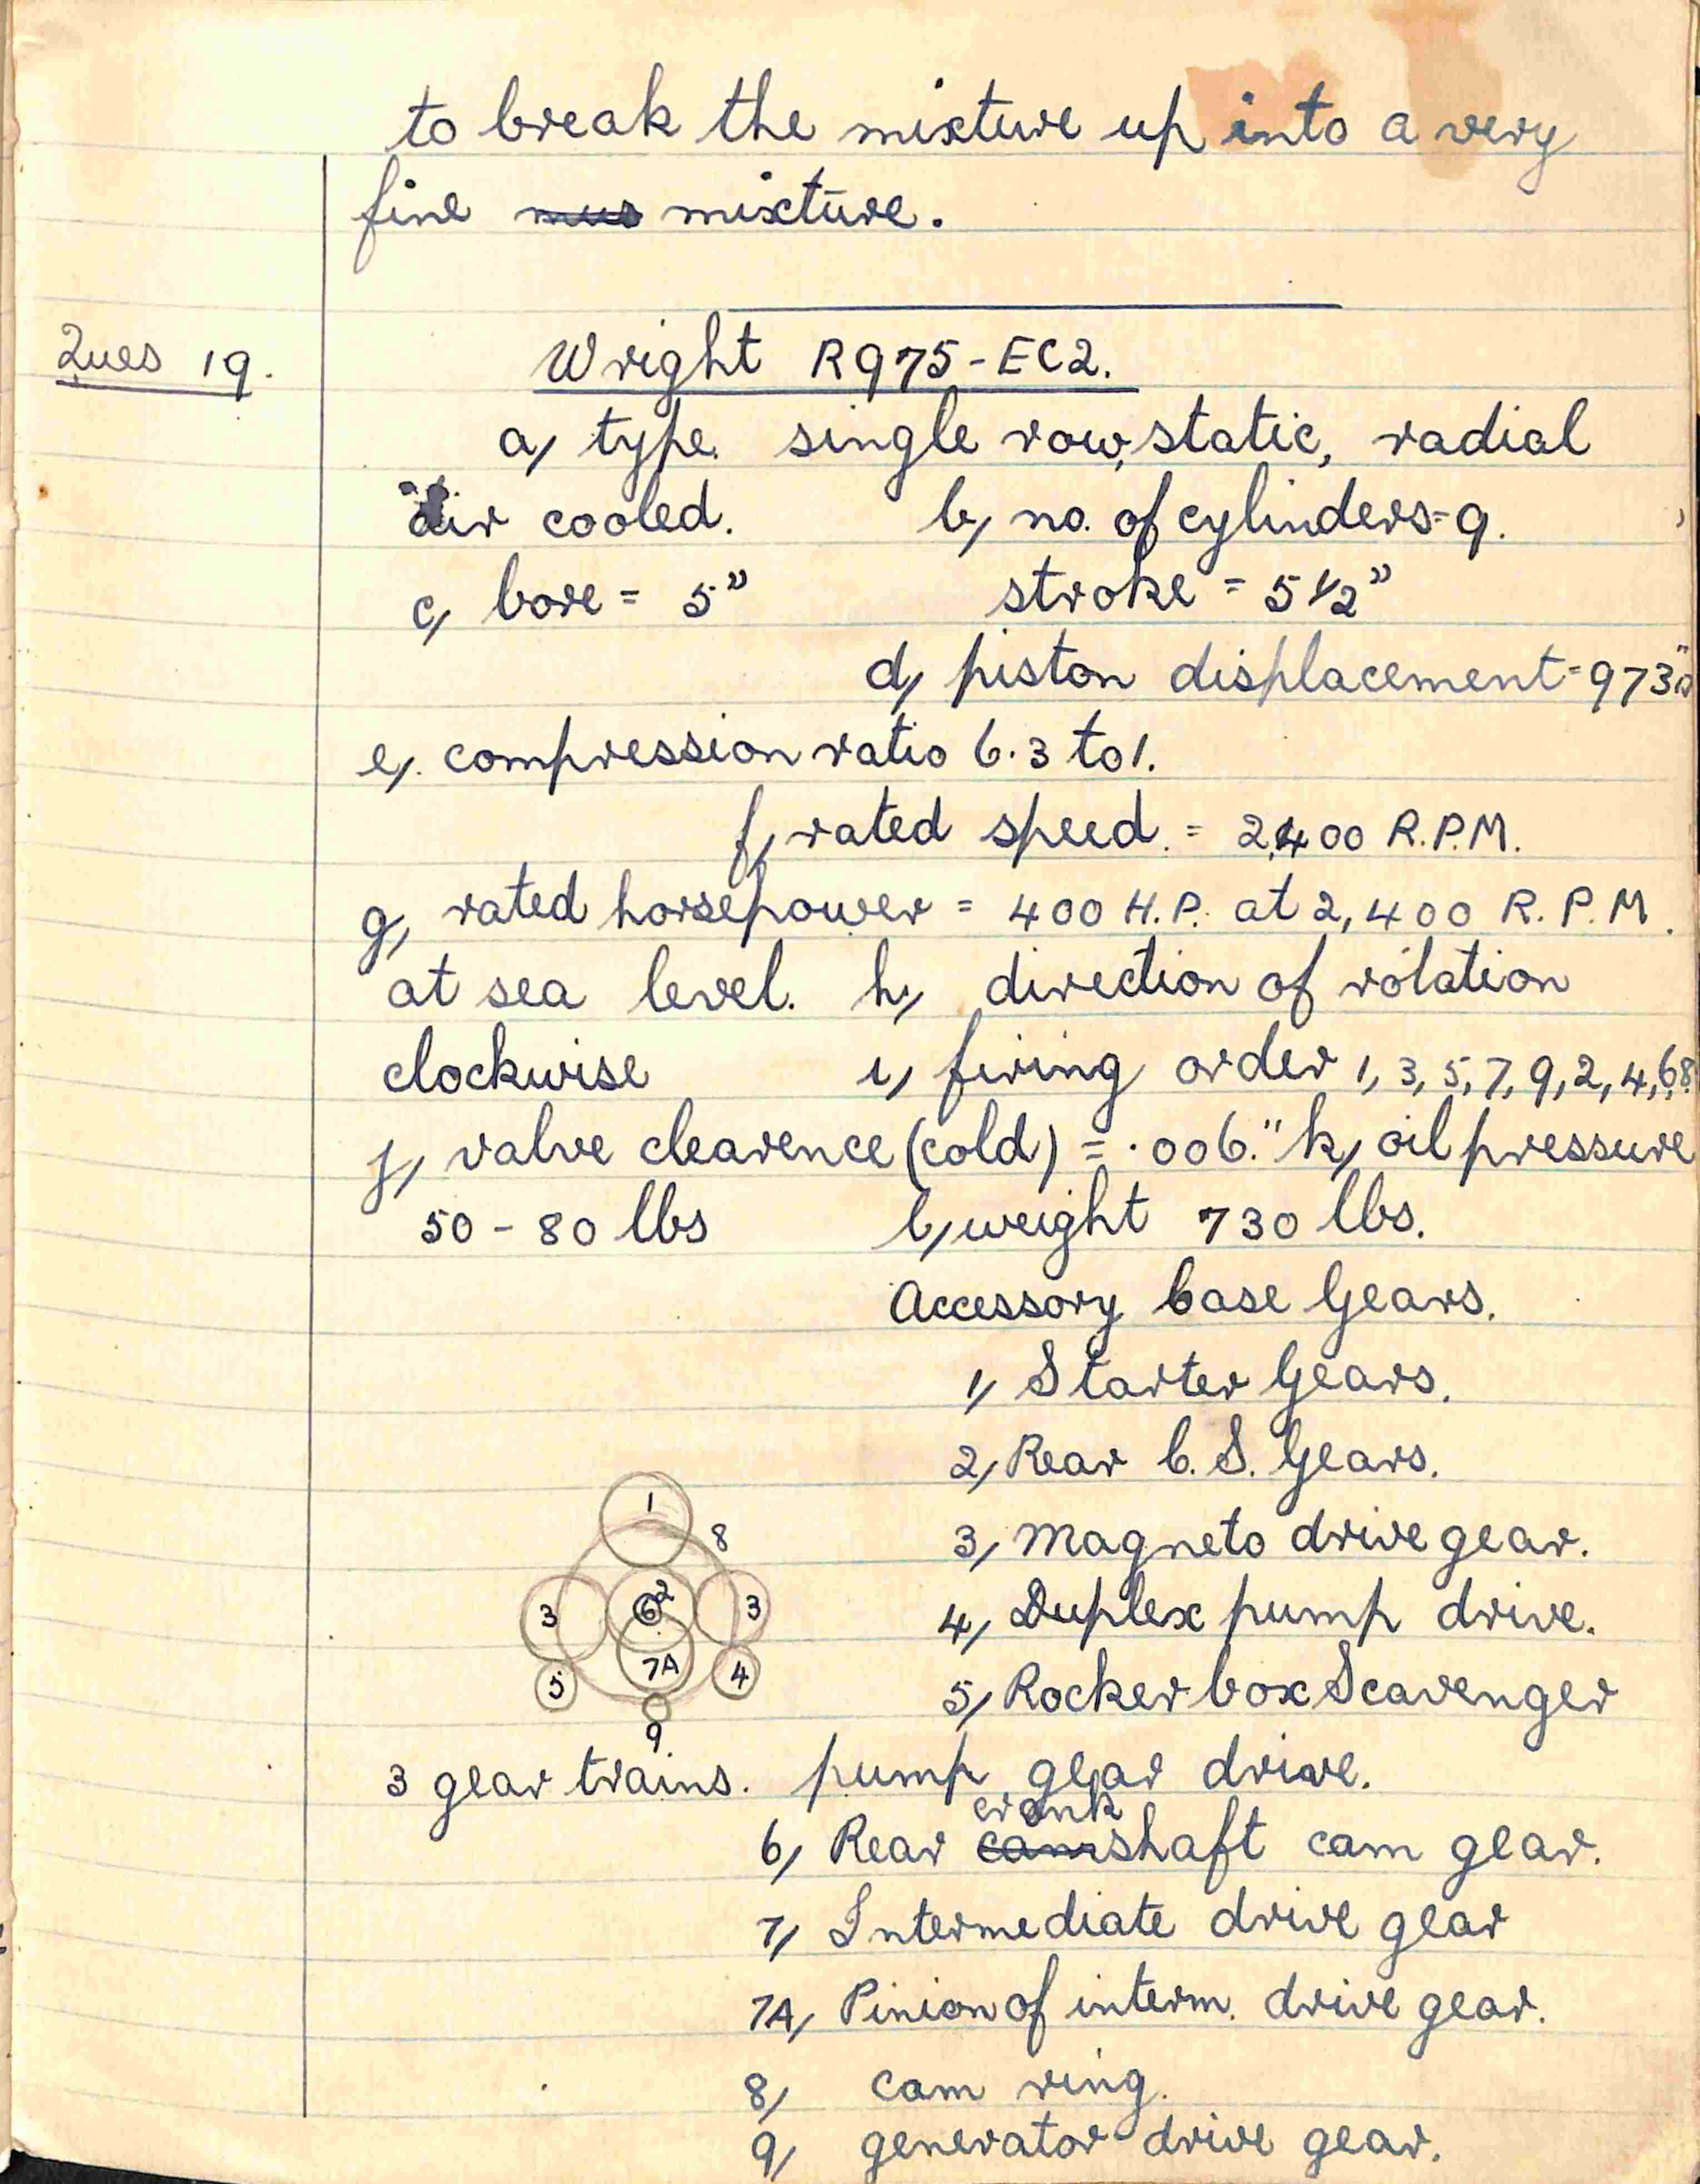 to break the mixture up into a very
fine mixture.
Ques 19.
Wright R975-EC2.
a, type. single row, static, radial
air cooled. b, no. of cylinders=9.
c, bore = 5" stroke = 5 1/2"
d, piston displacement=973
e, compression ratio 6.3 to 1.
f, rated speed. = 2,400 R.P.M.
g, rated horsepower = 400 H.P. at 2,400 R.P.M.
at sea level. h, direction of rotation
clockwise i, firing order 1,3,5,7,9,2,4,6,8.
j, valve clearence (cold) = .006." k, oil pressure
50 - 80 lbs l, weight 730 lbs.
Accessory base Gears.
1, Starter Gears.
2, Rear C.S. Gears.
3, Magneto drive gear.
4, Duplex pump drive.
5, Rocker box Scavenger
1
8
3
6
2
3
5
7A
4
9
3 gear trains. pump gear drive.
6, Rear cam crank shaft cam gear.
7, Intermediate drive gear
7A, Pinion of interm. drive gear.
8, cam ring.
9, generator drive gear.